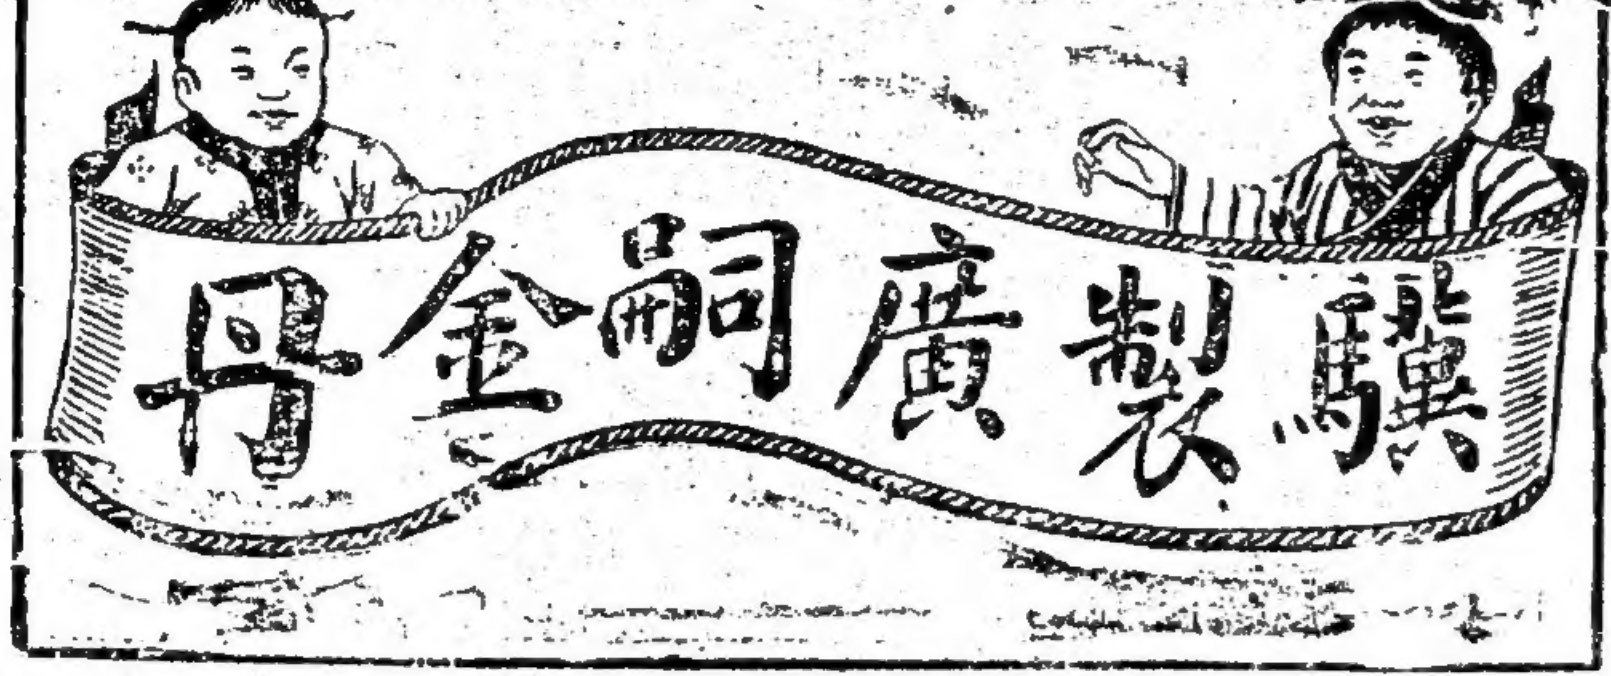 驥製廣嗣金丹